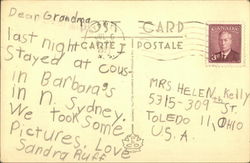 Dear Grandma
last night I
Stayed at cous-
in Barbara's
in N. Sydney.
We took some
Pictures, Love
Sandra Ruff
POST CARD
CARTE POSTALE
CANADA
MRS HELEN Kelly
5315-309 St.
TOLEDO 11, OHIO
U.S.A.